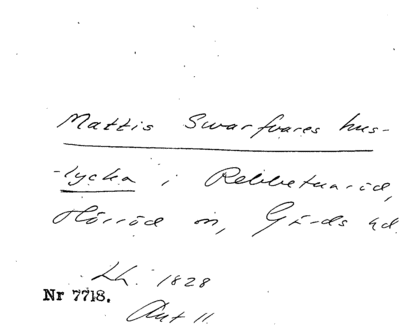 Mattis Swarfvares hus-
-lycka i Rebbetuaröd,
Hörröd sn, Gärds hd.
Lh. 1828
Nr 7718.
Akt 11.